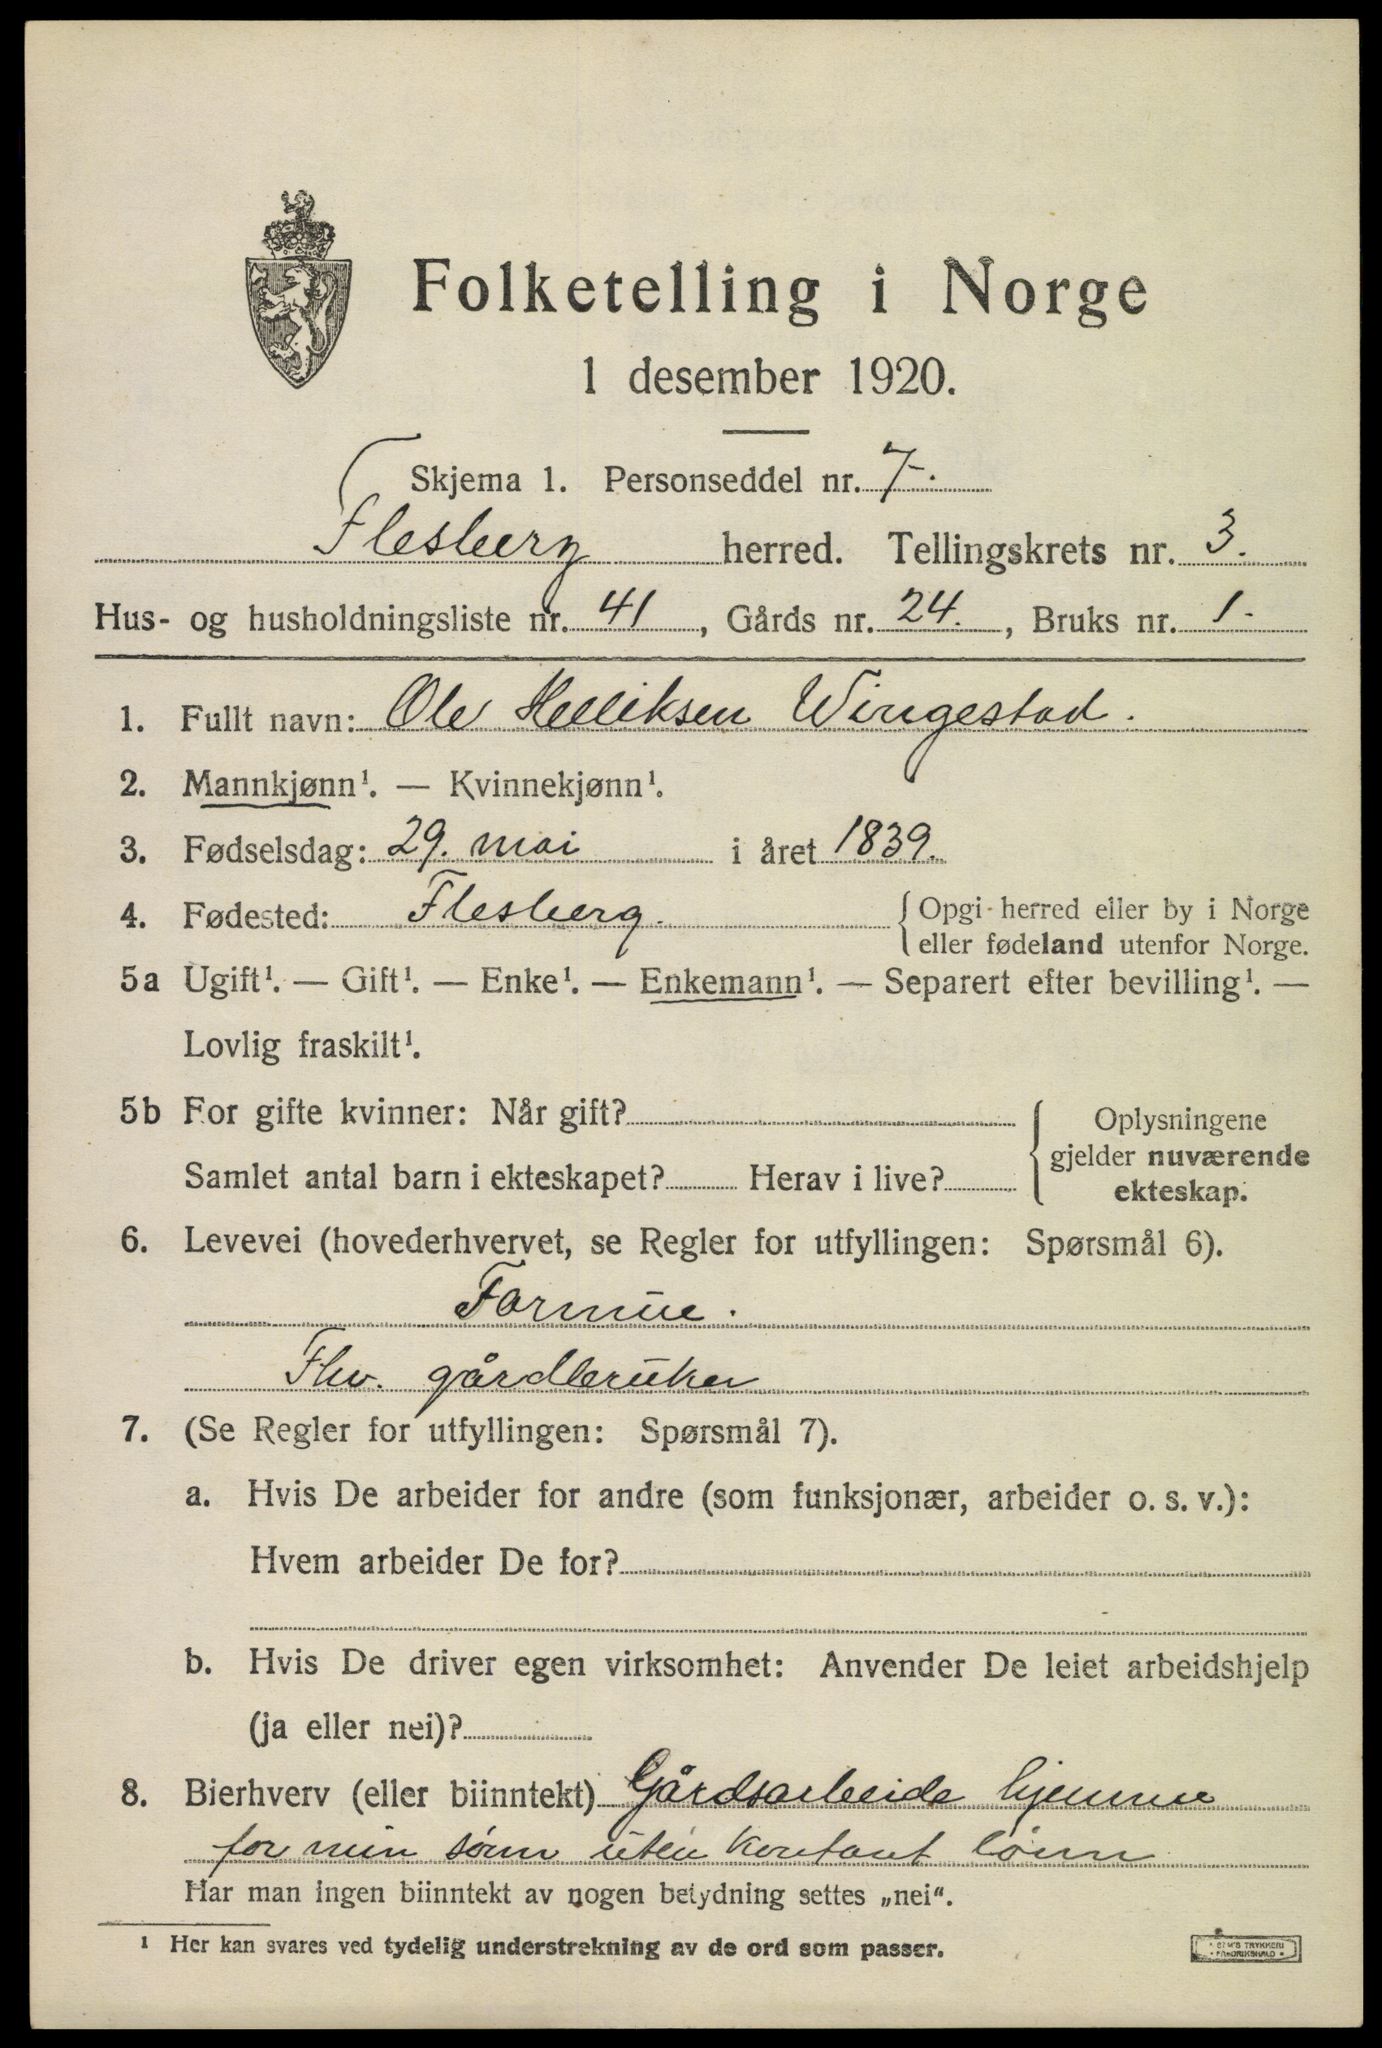 Folketelling i Norge
1 desember 1920.
Skjema 1. Personseddel nr. 7.
Flesberg herred. Tellingskrets nr. 3.
Hus- og husholdningsliste nr. 41, Gårds nr. 24., Bruks nr. 1.
1. Fullt navn: Ole Helliksen Wingestad.
2. Mannkjønn¹. — Kvinnekjønn¹.
3. Fødselsdag: 29. mai i året 1839.
4. Fødested: Flesberg. { Opgi herred eller by i Norge
eller fødeland utenfor Norge.
5a Ugift¹. — Gift¹. — Enke¹. — Enkemann¹. — Separert efter bevilling¹. —
Lovlig fraskilt¹.
5b For gifte kvinner: Når gift? { Oplysningene
gjelder nuværende
ekteskap.
Samlet antal barn i ekteskapet? Herav i live?
6. Levevei (hovederhvervet, se Regler for utfyllingen: Spørsmål 6).
Formue.
Fhv. gårdbruker
7. (Se Regler for utfyllingen: Spørsmål 7).
a. Hvis De arbeider for andre (som funksjonær, arbeider o. s. v.):
Hvem arbeider De for?
b. Hvis De driver egen virksomhet: Anvender De leiet arbeidshjelp
(ja eller nei)?
8. Bierhverv (eller biinntekt) Gårdsarbeide hjemme
for min sønn uten kontant lønn
Har man ingen biinntekt av nogen betydning settes „nei“.
¹ Her kan svares ved tydelig understrekning av de ord som passer.
TRYKKERI
FREDRIKSHALD